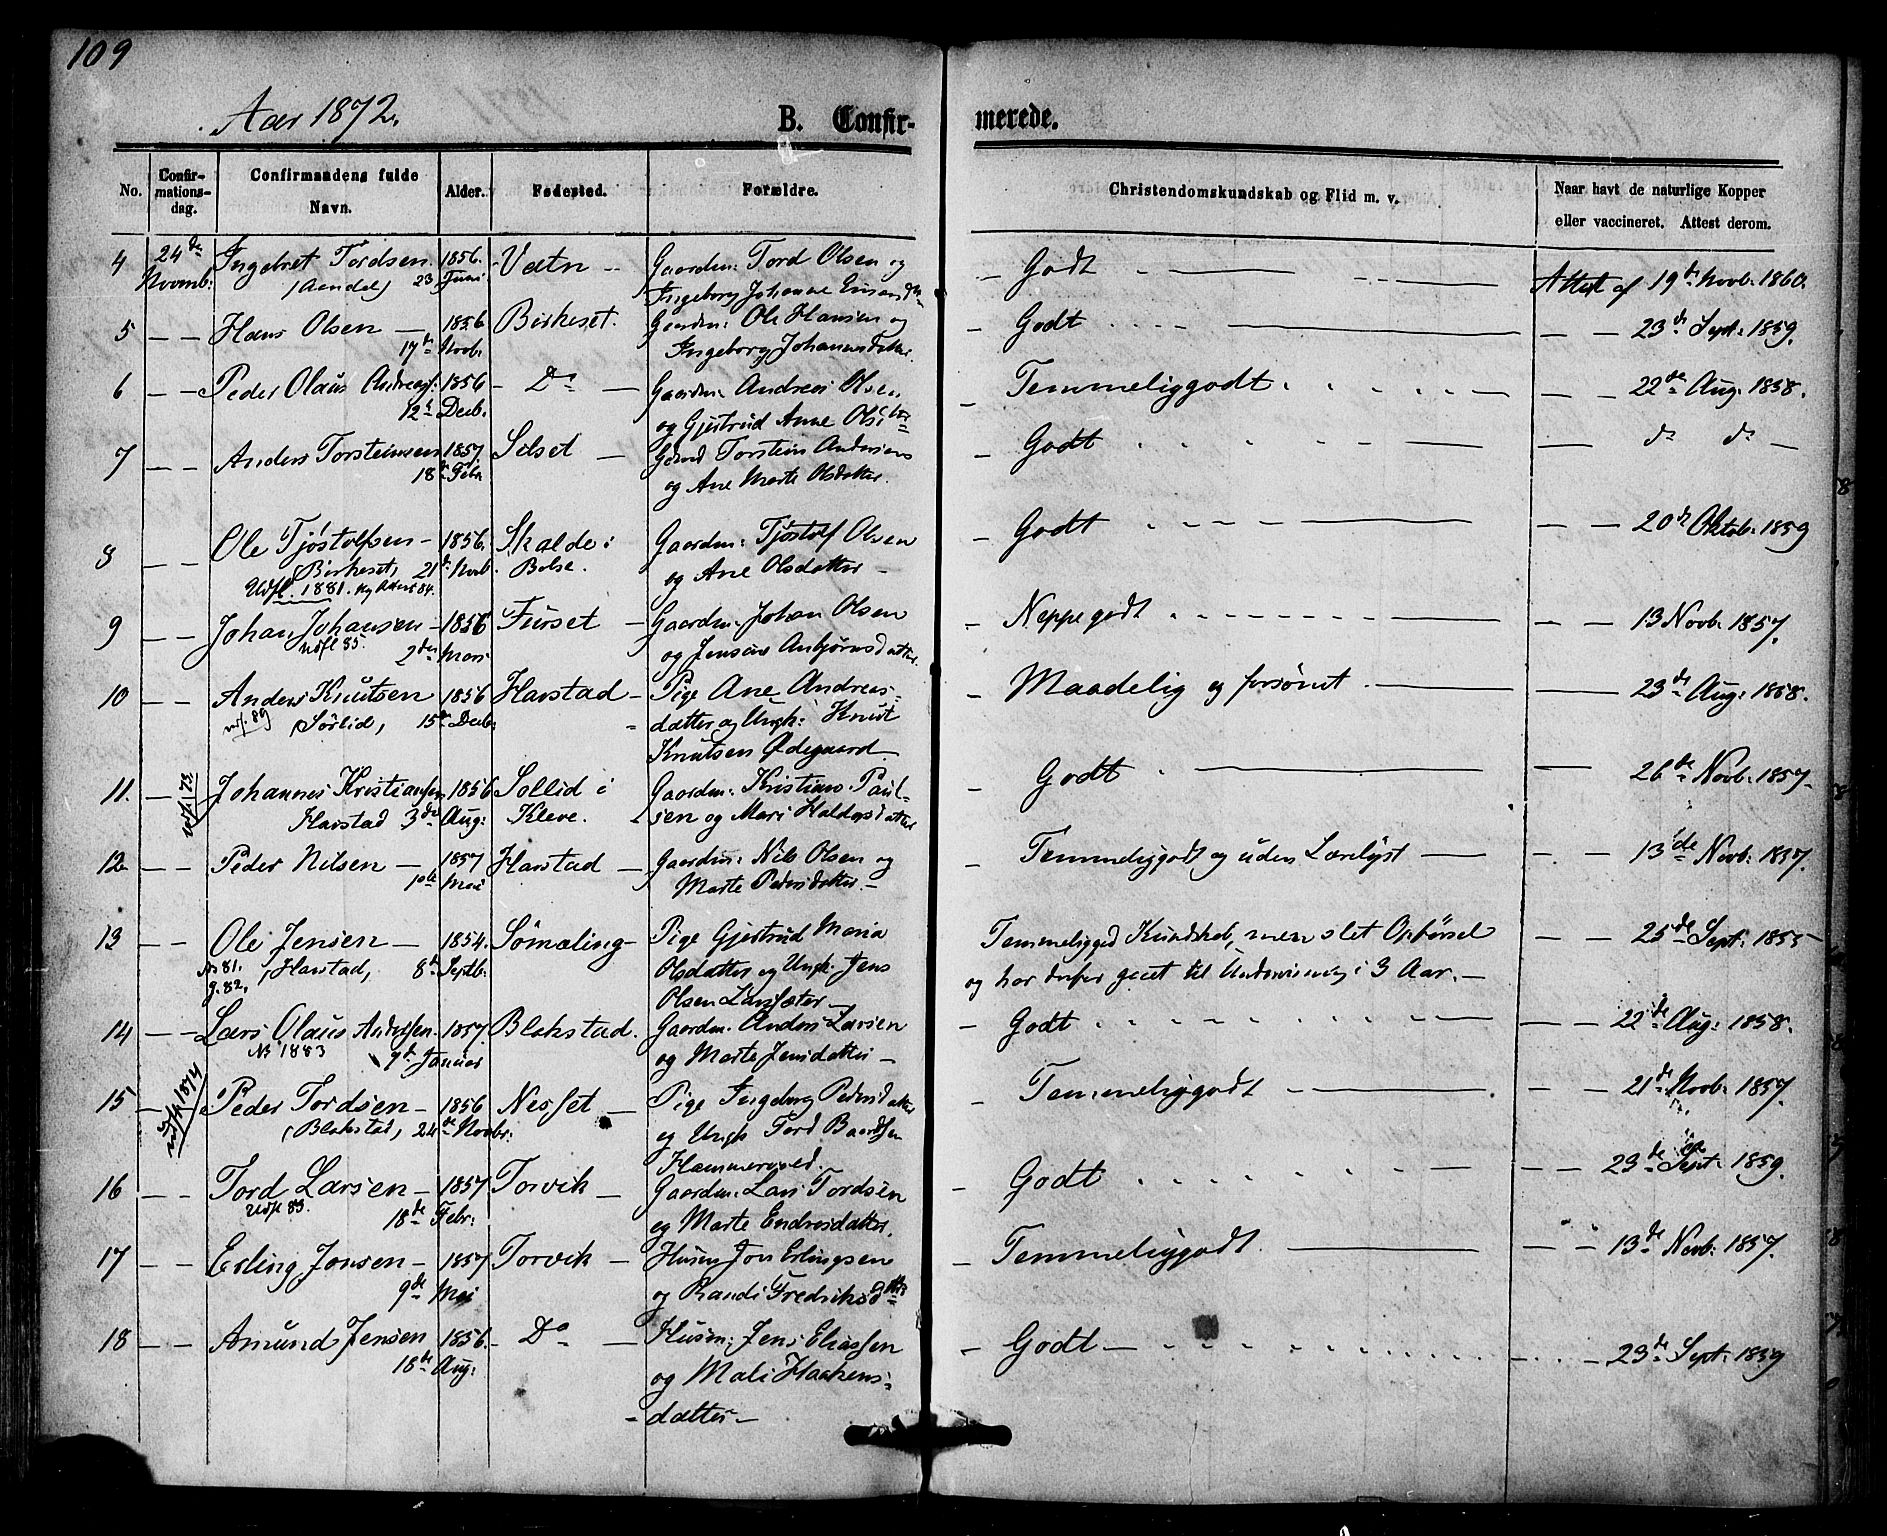 109
Aar 1872.
B. Confir-
merede.
No.
Confir-
mations-
dag.
Confirmandens fulde
Navn.
Alder.
Fødested.
Forældre.
Christendomskundskab og Flid m. v.
Naar havt de naturlige Kopper
eller vaccineret. Attest derom.
4 24de Novmb: Ingebret Tordsen 1856. Vatn Gaardm: Tord Olsen og — Godt Attest af 19de Novb: 1860.
23 Juni Ingeborg Johanne
5 — — Hans Olsen — 1856 Birkeset. Gaardm: Ole Hansen og — Godt — — 23de Sept: 1859.
17de Novb: Ingeborg
6 — — Peder Olaus 1856 — Do — Gaardm: Andreas Olsen — Temmeliggodt — — 22de Aug: 1858.
12te Decb. og Gjertrud Anne
7 — — Anders Torsteinsen 1857. Silset — Torstein Andersen — Godt do do —
18de Febr og Ane Marte Olsdatter.
8 — — Ole Tjøstolfsen — 1856. Skalde i Gaardm: Tjøstolf Olsen — Godt — — 20de Oktob: 1859
Birkeset, 21de Novb. Bolse. og Ane Olsdatter —
Udfl. 1881.
9 — — Johan Johansen — 1856 Furset — Gaardm: Johan Olsen — Neppe godt — — 13 Novb: 1857.
udfl 85. 2den Mars og
10 — — Anders Knutsen 1856 Harstad — Pige Ane Andreas- — Maadelig og forsømt — — 23de Aug: 1858.
89 15de Decb: datter og Ungk: Knut
Knutsen Ødegaard
11. — — Johannes Kristiansen 1856 Sollid i Gaardm: Kristian Paul- Godt — — 26de Novb: 1857.
udfl. 73
Harstad 3de Aug: Kleve. sen og Mari Haldorsdatter
12 — — Peder Nilsen — 1857 Harstad — Gaardm: Nils Olsen og — Temmeliggodt og uden Lærelyst — 13de Novb: 1857.
10de Mai Marte Pedersdatter. —
13 — — Ole Jensen — 1854. Sømæling — Pige Gjertrud Maria Temmeliggod Kundskab, men slet Opførsel — — 25de Sept: 1855 —
81. (Harstad, 8de Septb: Olsdatter og Ungk. Jens og har derfor gaaet til Underviisning i 3 Aar. —
82, Olsen
14 — — Lars Olaus Andersen. 1857. Blakstad. Gaardm. Anders Larsen — Godt — — 22de Aug: 1858.
1883 7de Januar og Marte Jensdatter —
15 — Peder Tordsen — 1856 Nesset — Pige Ingeborg Pedersdatter — Temmeliggodt — — 21de Novb: 1857.
udfl. 1874
(Blakstad, 24de Novbr: og Ungk Tord Baardsen
Hammervold.
16 — — Tord Larsen — 1857 Torvik — Gaardm: Lars Tordsen — Godt — — 23de Sept: 1859.
Udfl 83. 18de Febr: og Marte Endresdatter.
17 — — Erling Jonsen — 1857 Torvik — Husm Jon Erlingsen — Temmeliggodt. — — 13de Novb: 1857.
9de Mai og Randi Fredriksd
18 — — Amund Jensen 1856. — Do — Husm: Jens Eliassen — Godt — — 23de Sept: 1859
18de Aug: og Mali Haakens-
datter —